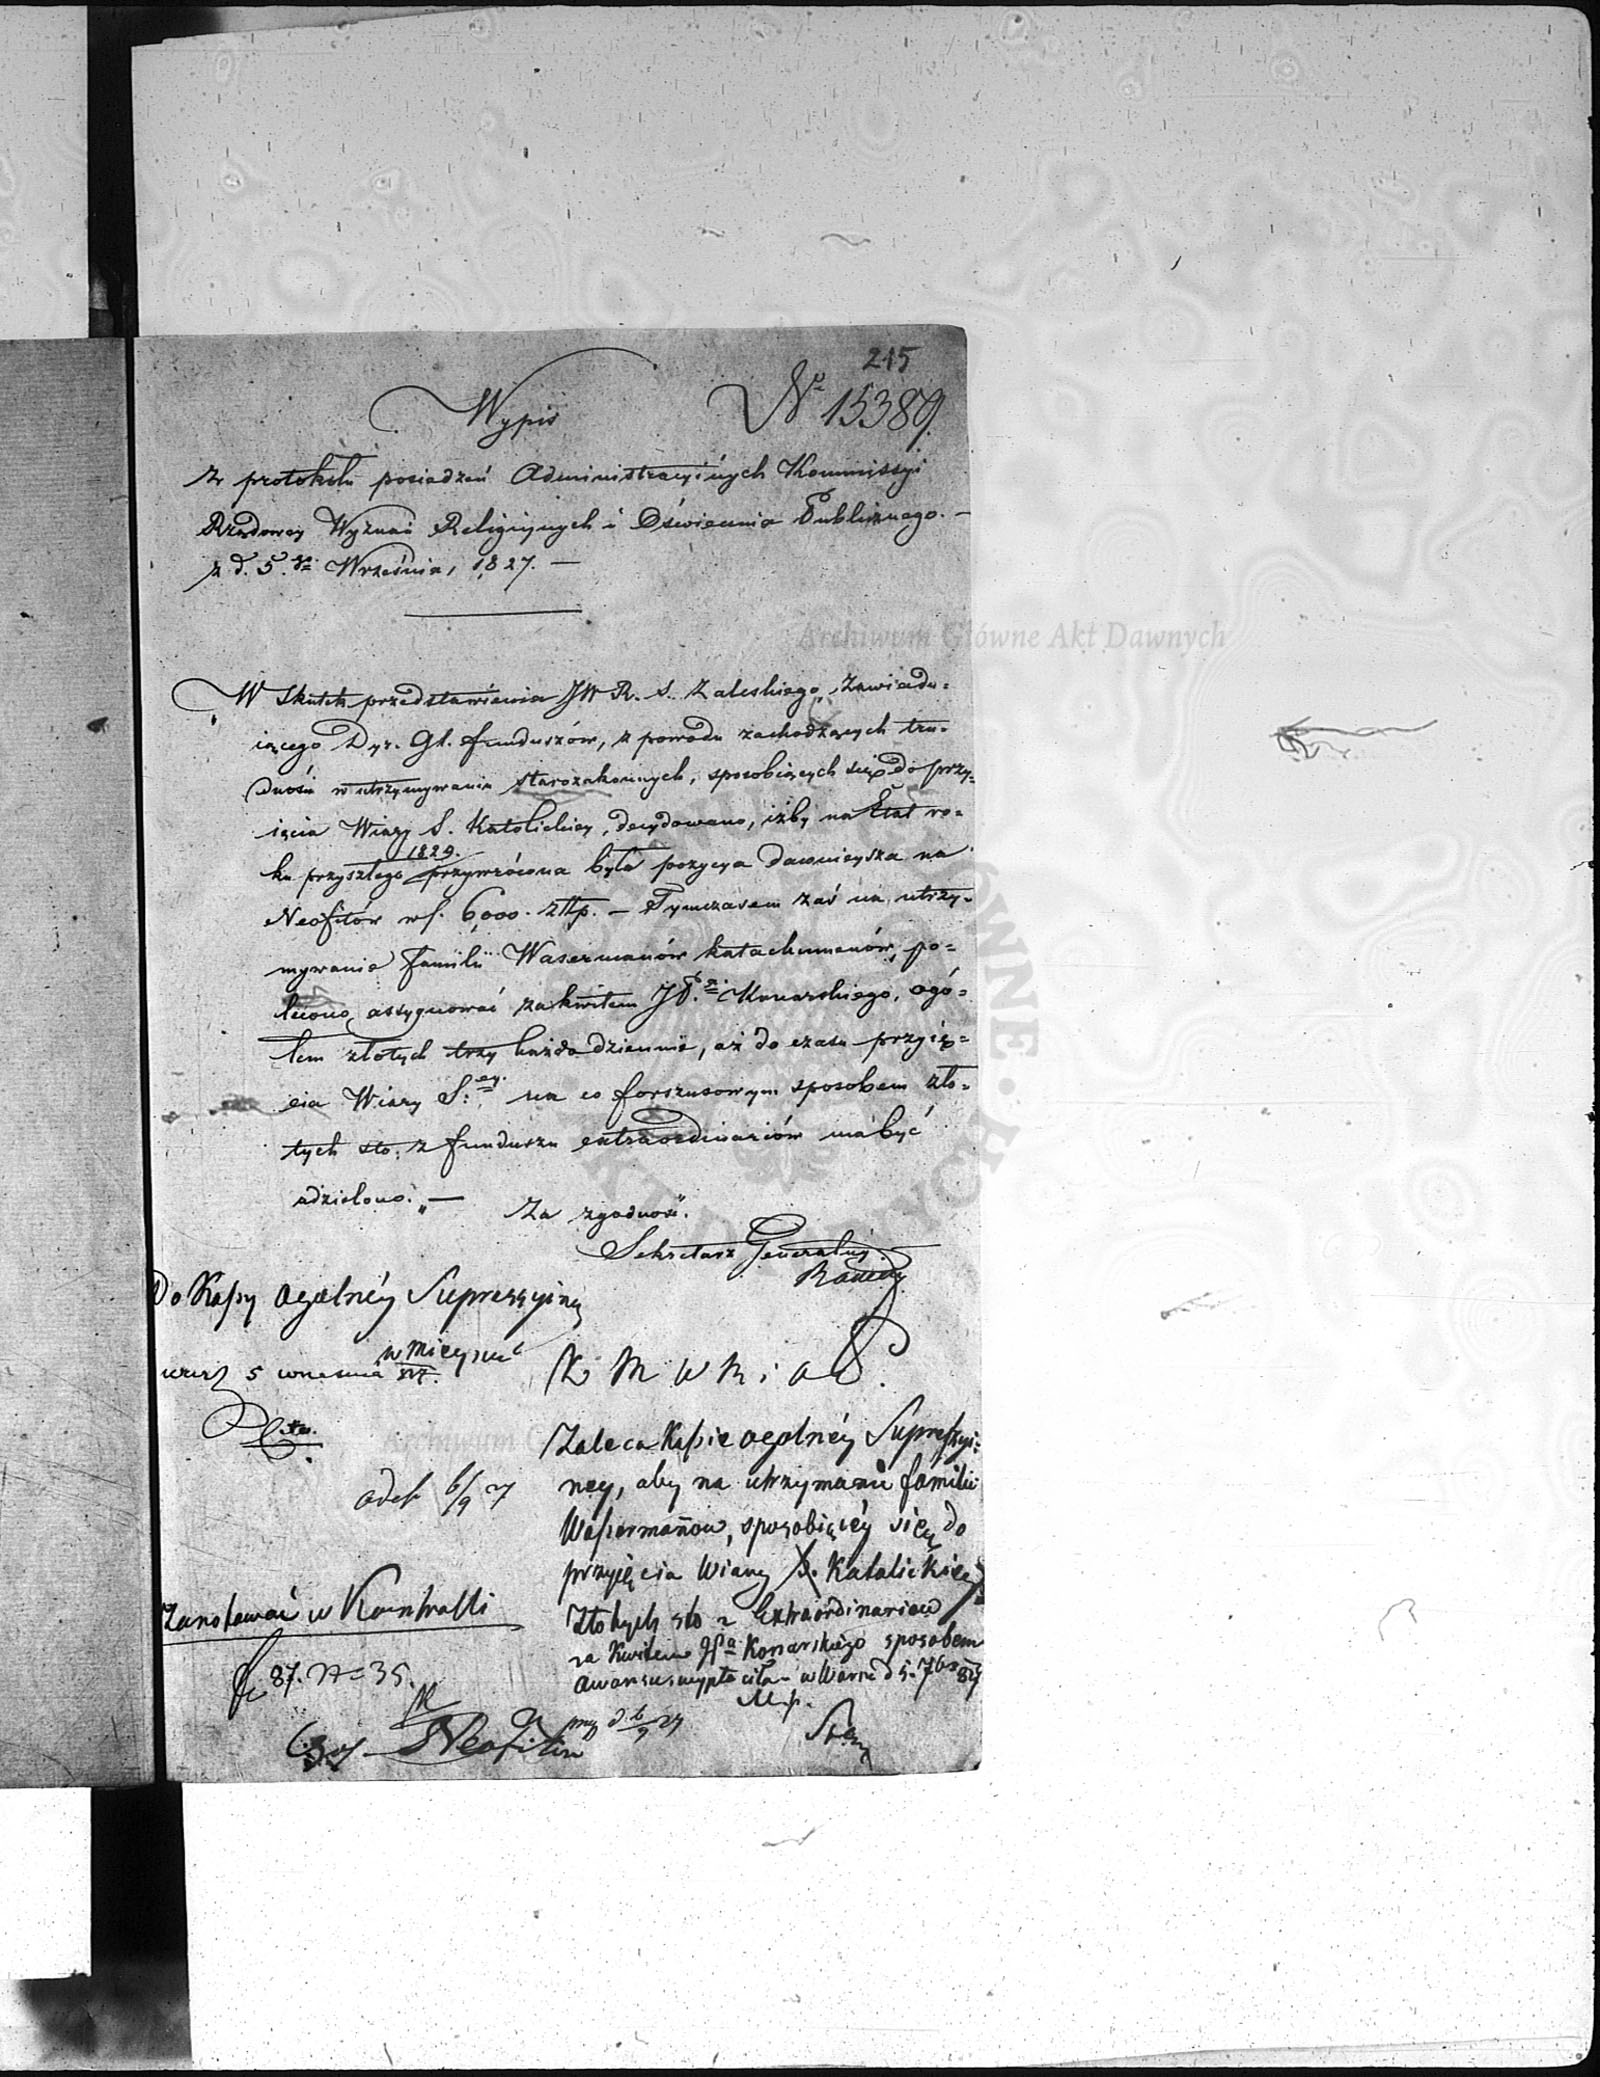 215
Wypis
No 15389.
z protokółu posiedzeń Administracyinych Kommissyi
Rządowey Wyznań Religiynych i Oświecenia Publicznego. —
z d. 5. go Września, 1827. —
W skutek przedstawienia JW R. S. Zaleskiego, zawiadu=
iącego Dyr. Gł. funduszów, z powodu zachodzących tru=
dności w utrzymywaniu starozakonnych, sposobiących się do przy=
ięcia Wiary S. Katolickiey, decydowano, iżby na Etat ro=
1829.
ku przyszłego przywrócona była pozycya dawnieysza na
Neofitów wf. 6,000. złłp. — Tymczasem zaś na utrzy=
mywanie familii Wasermanów katachumenów, po=
lecono, assygnować za kwitem JP. Konarskiego, ogó=
łem złotych trzy każdodziennie, aż do czasu przyię=
cia Wiary S: ey. na co forszusowym sposobem zło=
tych sto. z funduszu extraordinariów ma być
udzielono. „ —
Za zgodność.
Sekretarz Generalny
Do Kassy ogólnéy Supressyiney
w Mieyscu
5 wrzesnia 827.
K M W R i O P.
Zaleca Kassie ogólnéy Supressyi=
ney, aby na utrzymanie familii
Wassermanow, sposobiącéy się do
przyięcia Wiary S. Katolickiey
Złotych sto z Extraordinariow
za Kwitem JP Konarskiego sposobem
awansu wypłaciła w Warsz d 5. 7br 827
M.p.
6/9 27
Zanotować w Kontrolli
87. N= 35.
Neofitów